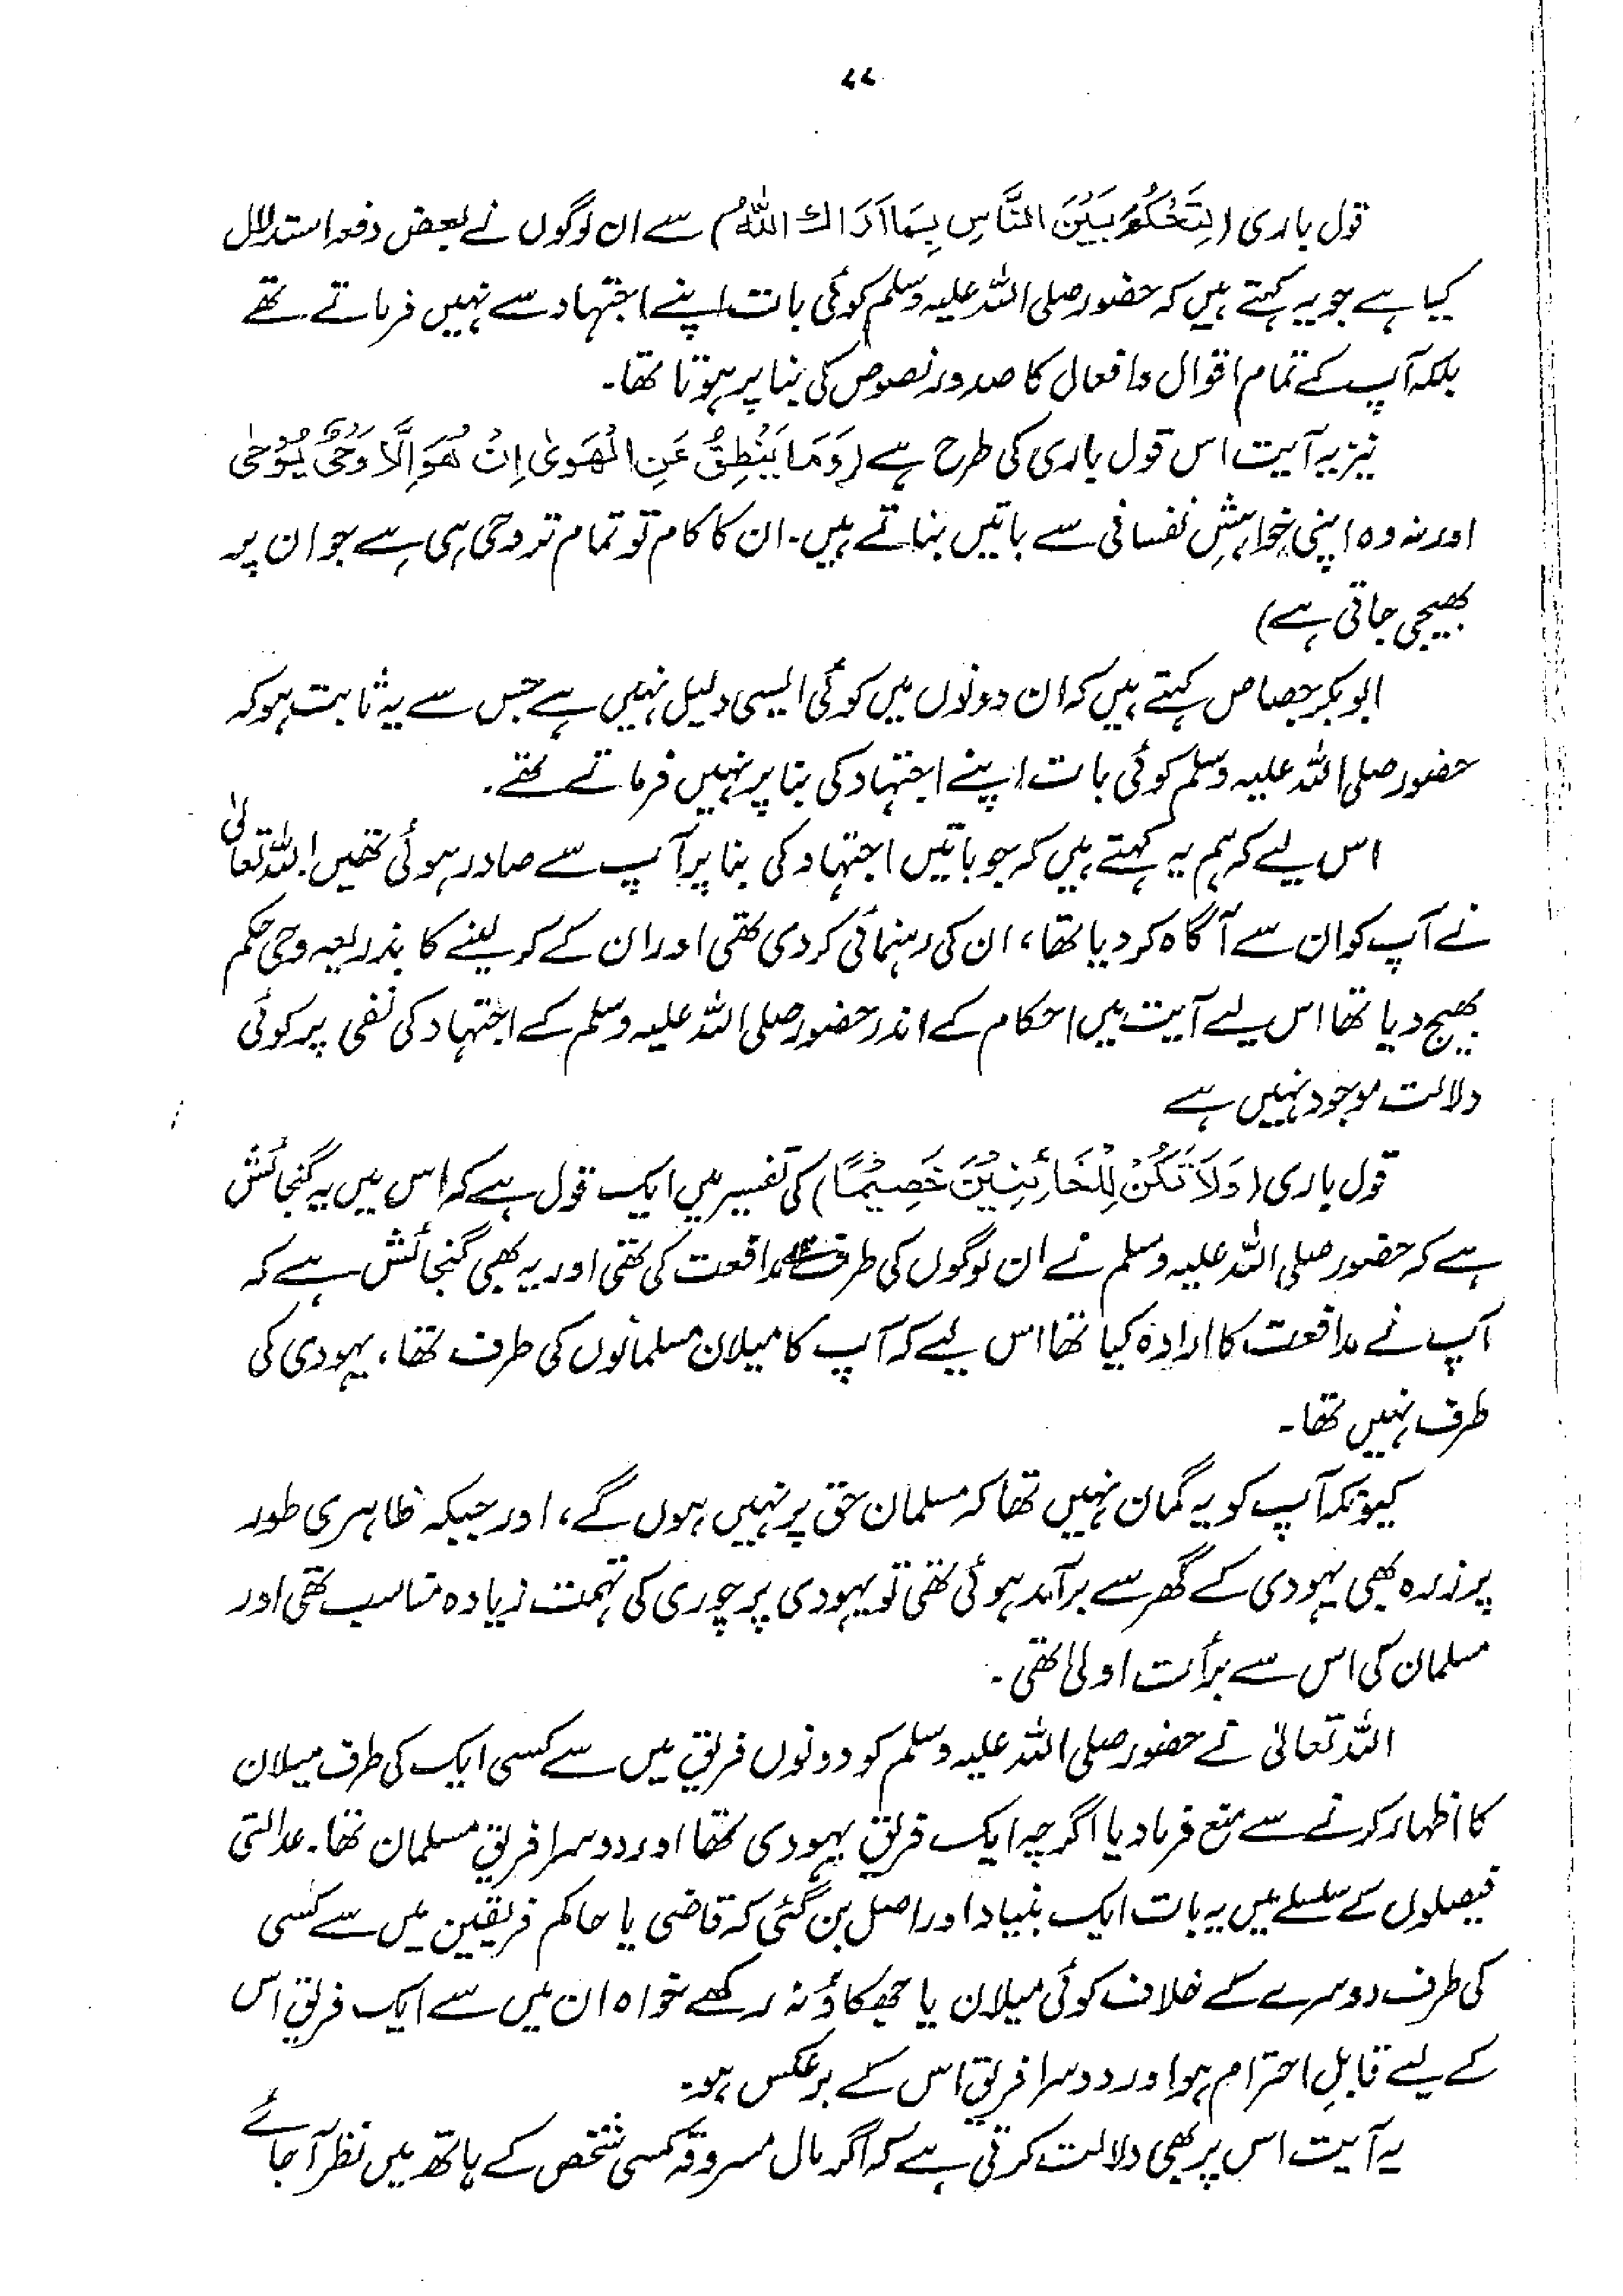 ۷۷
قول باری (لِتَحْكُمَ بَيْنَ النَّاسِ بِمَا اَرَاكَ اللهُ) سے ان لوگوں نے بعض دفعہ استدلال
کیا ہے جو یہ کہتے ہیں کہ حضور صلی اللہ علیہ وسلم کوئی بات اپنے اجتہاد سے نہیں فرماتے تھے
بلکہ آپ کے تمام اقوال و افعال کا صدور نصوص کی بنا پر ہوتا تھا۔
نیز یہ آیت اس قول باری کی طرح ہے (وَمَا يَنْطِقُ عَنِ الْهَوىٰ اِنْ هُوَ اِلَّا وَحْیٌ يُّوْحٰی
اور نہ وہ اپنی خواہشِ نفسانی سے باتیں بناتے ہیں۔ ان کا کام تو تمام تر وحی ہی ہے جو ان پر
بھیجی جاتی ہے)
ابوبکر جصاص کہتے ہیں کہ ان دونوں میں کوئی ایسی دلیل نہیں ہے جس سے یہ ثابت ہو کہ
حضور صلی اللہ علیہ وسلم کوئی بات اپنے اجتہاد کی بنا پر نہیں فرماتے تھے۔
اس لیے کہ ہم یہ کہتے ہیں کہ جو باتیں اجتہاد کی بنا پر آپ سے صادر ہوئی تھیں اللہ تعالیٰ
نے آپ کو ان سے آگاہ کر دیا تھا، ان کی رہنمائی کر دی تھی اور ان کے کر لینے کا بذریعہ وحی حکم
بھیج دیا تھا اس لیے آیت میں احکام کے اندر حضور صلی اللہ علیہ وسلم کے اجتہاد کی نفی پر کوئی
دلالت موجود نہیں ہے
قول باری (وَلَا تَكُنْ لِلْخَائِنِيْنَ خَصِيْمًا) کی تفسیر میں ایک قول ہے کہ اس میں یہ گنجائش
ہے کہ حضور صلی اللہ علیہ وسلم نے ان لوگوں کی طرف سے مدافعت کی تھی اور یہ بھی گنجائش ہے کہ
آپ نے مدافعت کا ارادہ کیا تھا اس لیے کہ آپ کا میلان مسلمانوں کی طرف تھا، یہودی کی
طرف نہیں تھا۔
کیونکہ آپ کو یہ گمان نہیں تھا کہ مسلمان حق پر نہیں ہوں گے، اور جبکہ ظاہری طور
پر زرہ بھی یہودی کے گھر سے برآمد ہوئی تھی تو یہودی پر چوری کی تہمت زیادہ مناسب تھی اور
مسلمان کی اس سے برأت اولیٰ تھی۔
اللہ تعالیٰ نے حضور صلی اللہ علیہ وسلم کو دونوں فریق میں سے کسی ایک کی طرف میلان
کا اظہار کرنے سے منع فرما دیا اگرچہ ایک فریق یہودی تھا اور دوسرا فریق مسلمان تھا۔ عدالتی
فیصلوں کے سلسلے میں یہ بات ایک بنیاد اور اصل بن گئی کہ قاضی یا حاکم فریقین میں سے کسی
کی طرف دوسرے کے خلاف کوئی میلان یا جھکاؤ نہ رکھے خواہ ان میں سے ایک فریق اس
کے لیے قابلِ احترام ہو اور دوسرا فریق اس کے برعکس ہو۔
یہ آیت اس پر بھی دلالت کرتی ہے کہ اگر مال مسروقہ کسی شخص کے ہاتھ میں نظر آ جائے